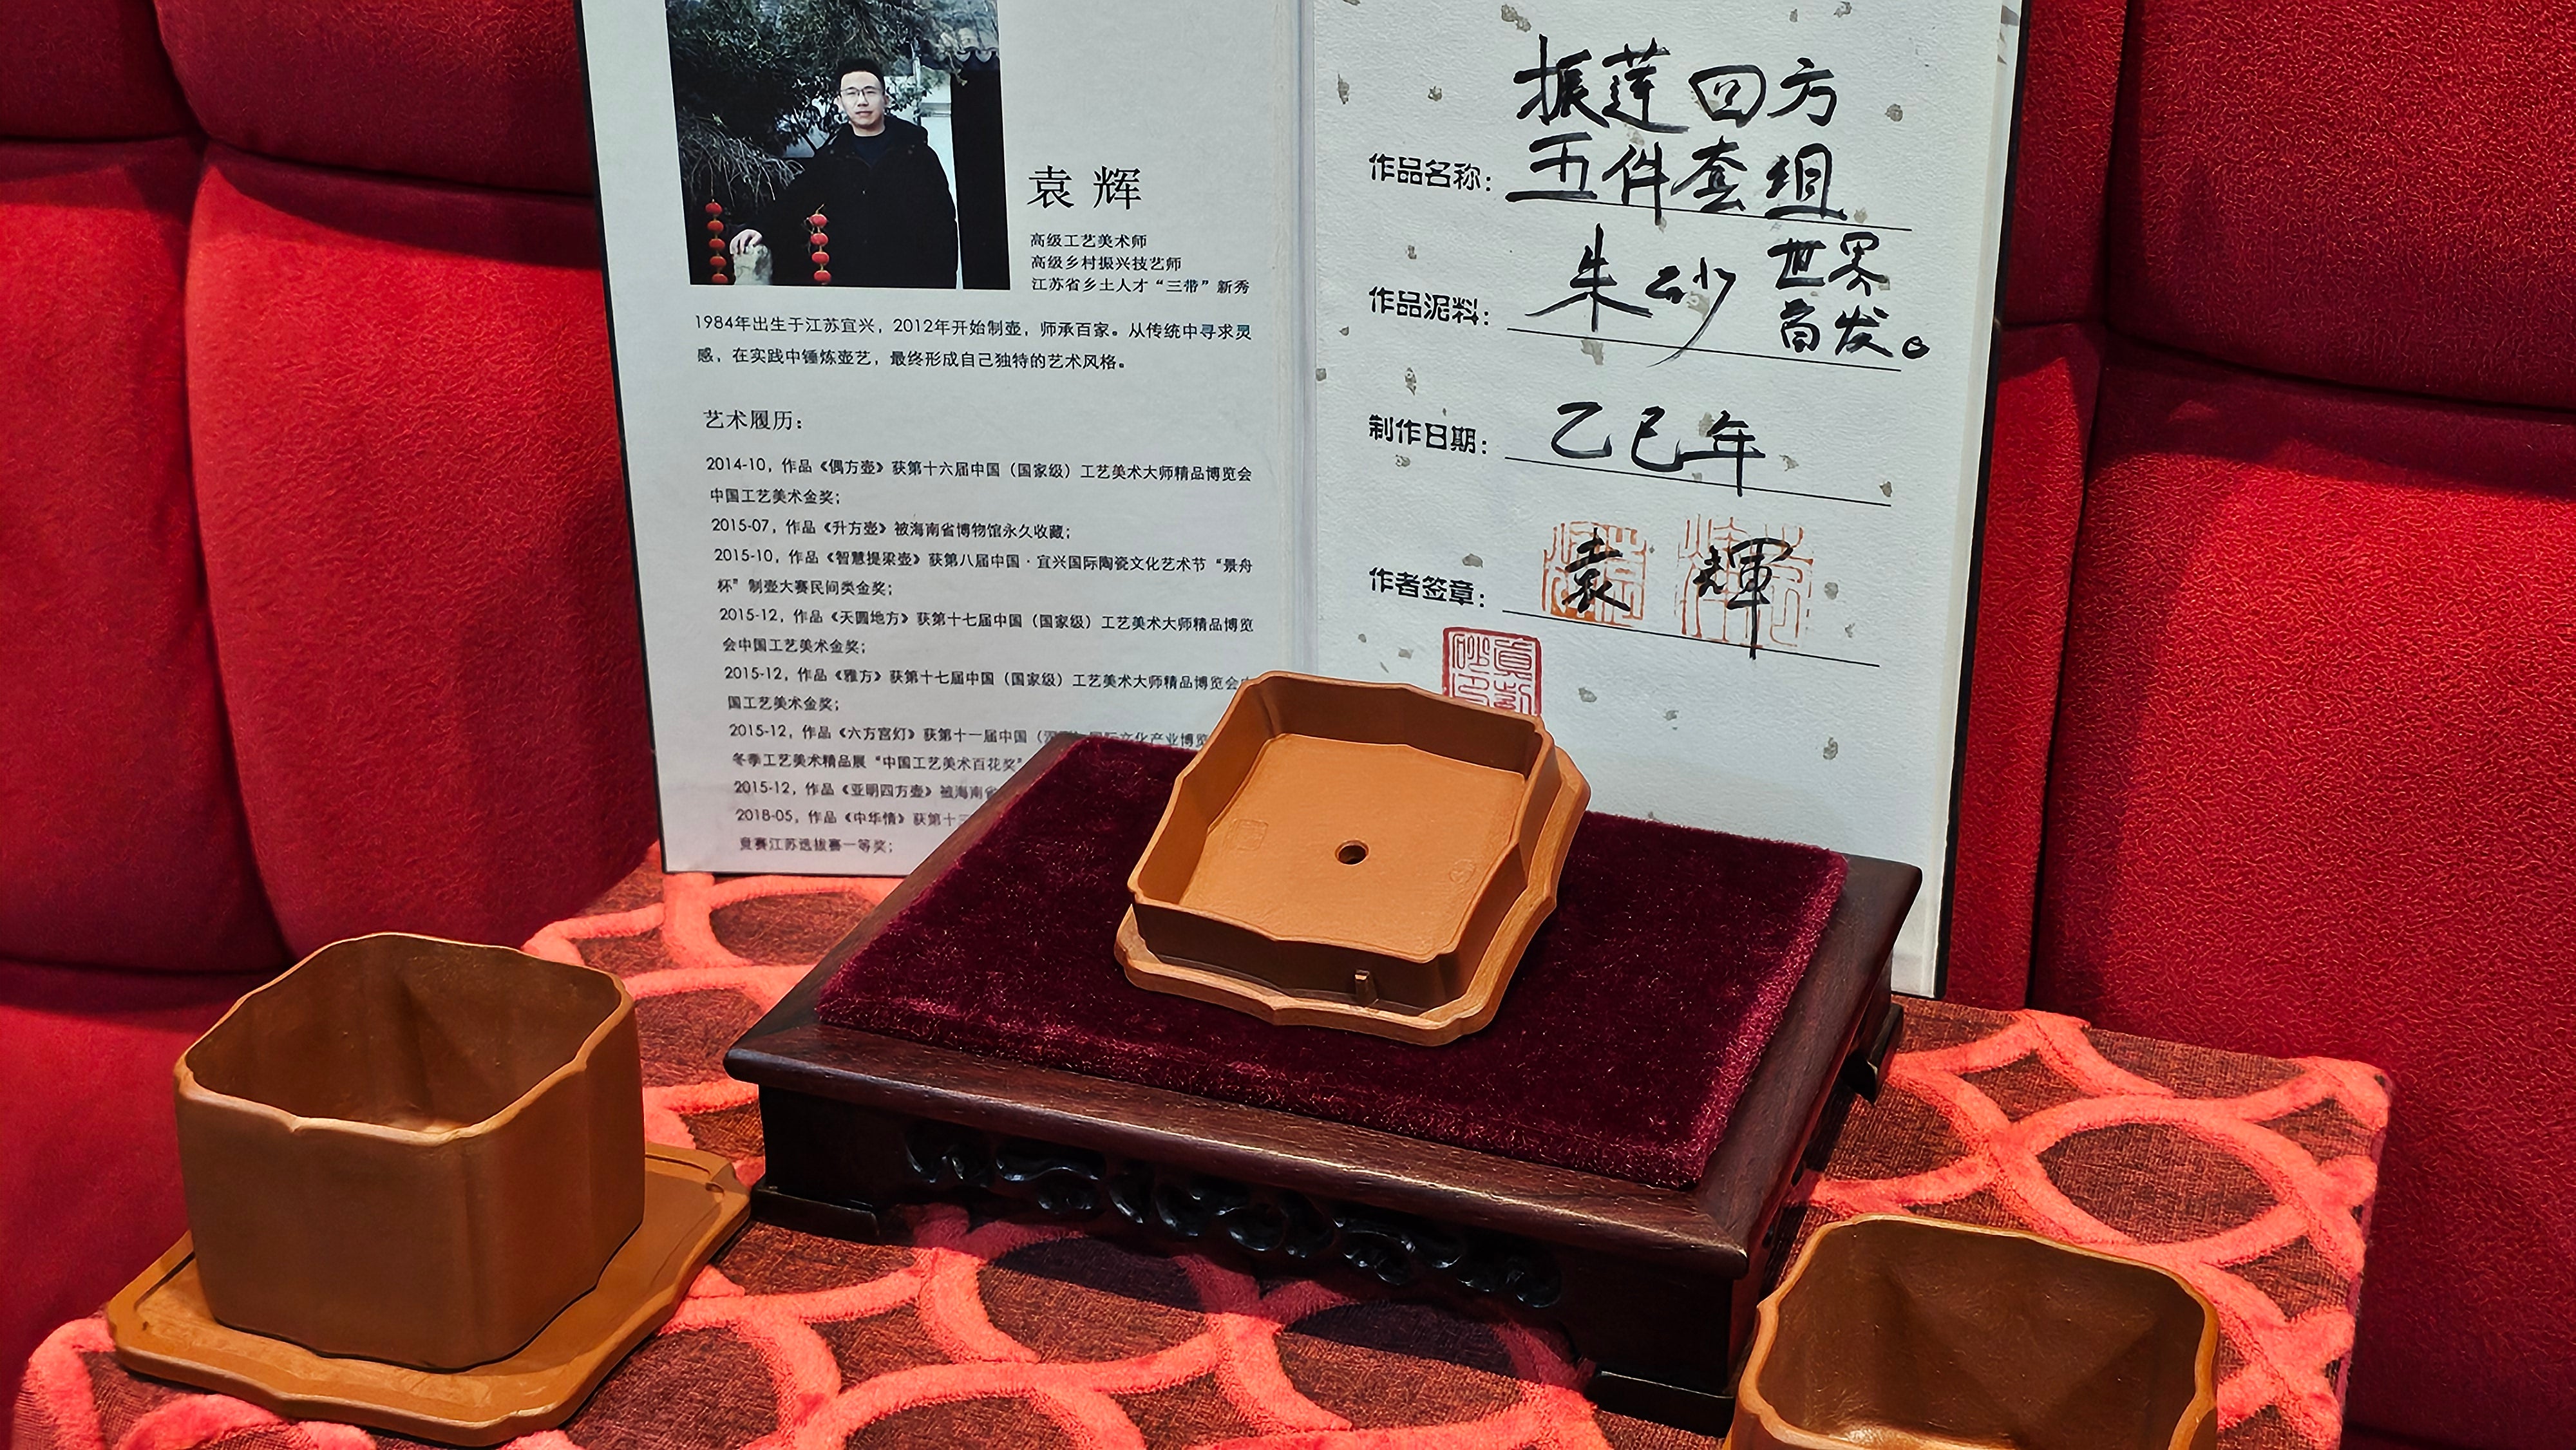 袁辉
高级工艺美术师
高级乡村振兴技艺师
江苏省乡土人才“三带”新秀
1984年出生于江苏宜兴，2012年开始制壶，师承百家。从传统中寻求灵
感，在实践中锤炼壶艺，最终形成自己独特的艺术风格。
艺术履历：
2014-10，作品《偶方壶》获第十六届中国（国家级）工艺美术大师精品博览会
中国工艺美术金奖；
2015-07，作品《升方壶》被海南省博物馆永久收藏；
2015-10，作品《智慧提梁壶》获第八届中国·宜兴国际陶瓷文化艺术节“景舟
杯”制壶大赛民间类金奖；
2015-12，作品《天圆地方》获第十七届中国（国家级）工艺美术大师精品博览
会中国工艺美术金奖；
2015-12，作品《雅方》获第十七届中国（国家级）工艺美术大师精品博览会
国工艺美术金奖；
2015-12，作品《六方宫灯》获第十一届中国（ 国际文化产业博览
冬季工艺美术精品展“中国工艺美术百花奖”
2015-12，作品《亚明四方壶》被海南省
2018-05，作品《中华情》获第十三
竞赛江苏选拔赛一等奖；
振莲四方
作品名称：五件套组
作品泥料：朱砂 世界
首发。
制作日期：乙巳年
作者签章：袁輝